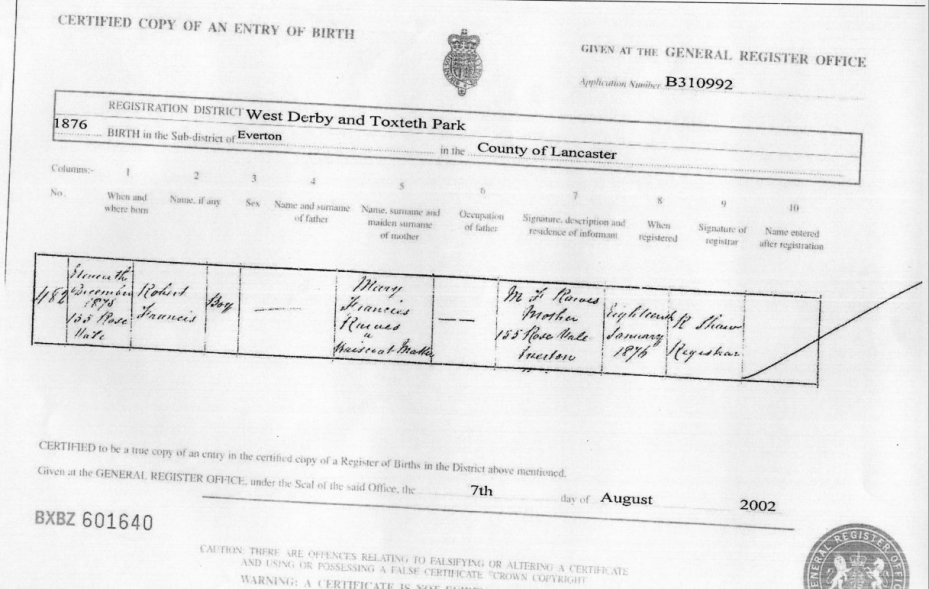 CERTIFIED COPY OF AN ENTRY OF BIRTH
GIVEN AT THE GENERAL REGISTER OFFICE
Application Number B310992
REGISTRATION DISTRICT West Derby and Toxteth Park
1876 BIRTH in the Sub-district of Everton in the County of Lancaster
Columns:- 1 2 3 4 5 6 7 8 9 10
No. When and where born Name, if any Sex Name and surname of father Name, surname and maiden surname of mother Occupation of father Signature, description and residence of informant When registered Signature of registrar Name entered after registration
482
Eleventh
December
1875
155 Rose
Vale
Robert
Francis
Boy
Mary
Francies
Raives
a
Waistcoat Maker
M F Raives
Mother
155 Rose Vale
Everton
Eighteenth
January
1876
R Shaw
Registrar
CERTIFIED to be a true copy of an entry in the certified copy of a Register of Births in the District above mentioned.
Given at the GENERAL REGISTER OFFICE, under the Seal of the said Office, the 7th day of August 2002
BXBZ 601640
CAUTION: THERE ARE OFFENCES RELATING TO FALSIFYING OR ALTERING A CERTIFICATE
AND USING OR POSSESSING A FALSE CERTIFICATE ©CROWN COPYRIGHT
WARNING: A CERTIFICATE IS NOT
GENERAL REGISTER OFFICE